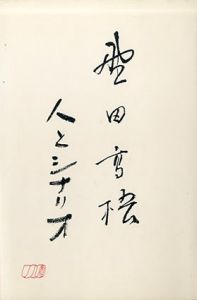 野田高梧
人とシナリオ